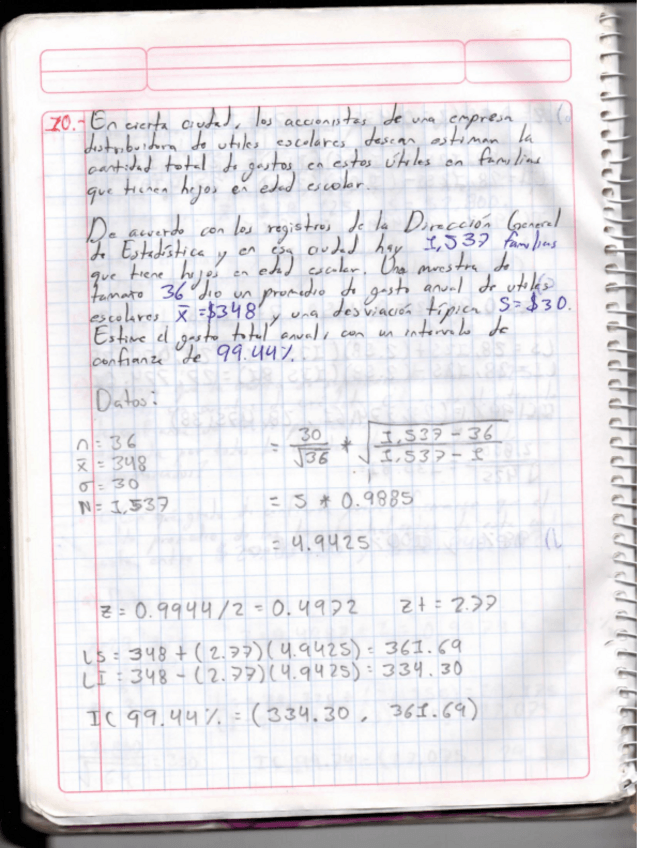 10.- En cierta ciudad, los accionistas de una empresa
distribuidora de utiles escolares desean estiman la
cantidad total de gastos en estos útiles en familias
que tienen hijos en edad escolar.
De acuerdo con los registros de la Dirección General
de Estadística y en esa ciudad hay 1,537 familias
que tiene hijos en edad escolar. Una muestra de
tamaño 36 dio un promedio de gasto anual de utiles
escolares x̄ =$348 y una desviación típica S=$30.
Estime el gasto total anual, con un intervalo de
confianza de 99.44%.
Datos:
n = 36
x̄ = 348
σ = 30
N = 1,537
= 30/√36 * √(1,537 - 36 / 1,537 - 1)
= 5 * 0.9885
= 4.9425
z = 0.9944/2 = 0.4972 zt = 2.77
LS = 348 + (2.77)(4.9425) = 361.69
LI = 348 - (2.77)(4.9425) = 334.30
IC 99.44% = (334.30 , 361.69)